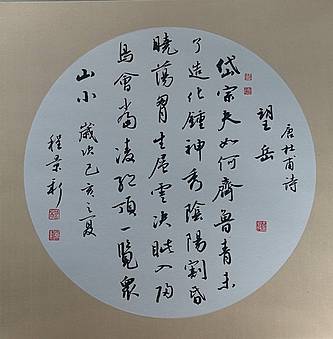 唐杜甫詩
望岳
岱宗夫如何齊魯青未
了造化鍾神秀陰陽割昏
曉蕩胷生层雲決眦入归
鳥會當凌絕頂一覽衆
山小
歲次己亥之夏
程景新